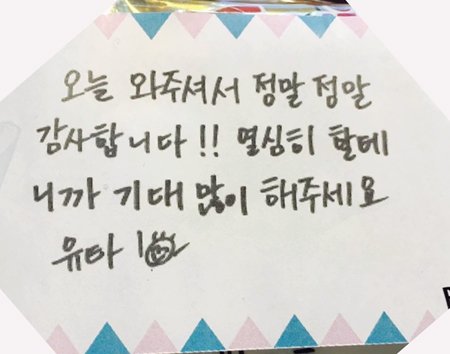 오늘 와주셔서 정말 정말
감사합니다!! 열심히 할테
니까 기대 많이 해주세요
유타